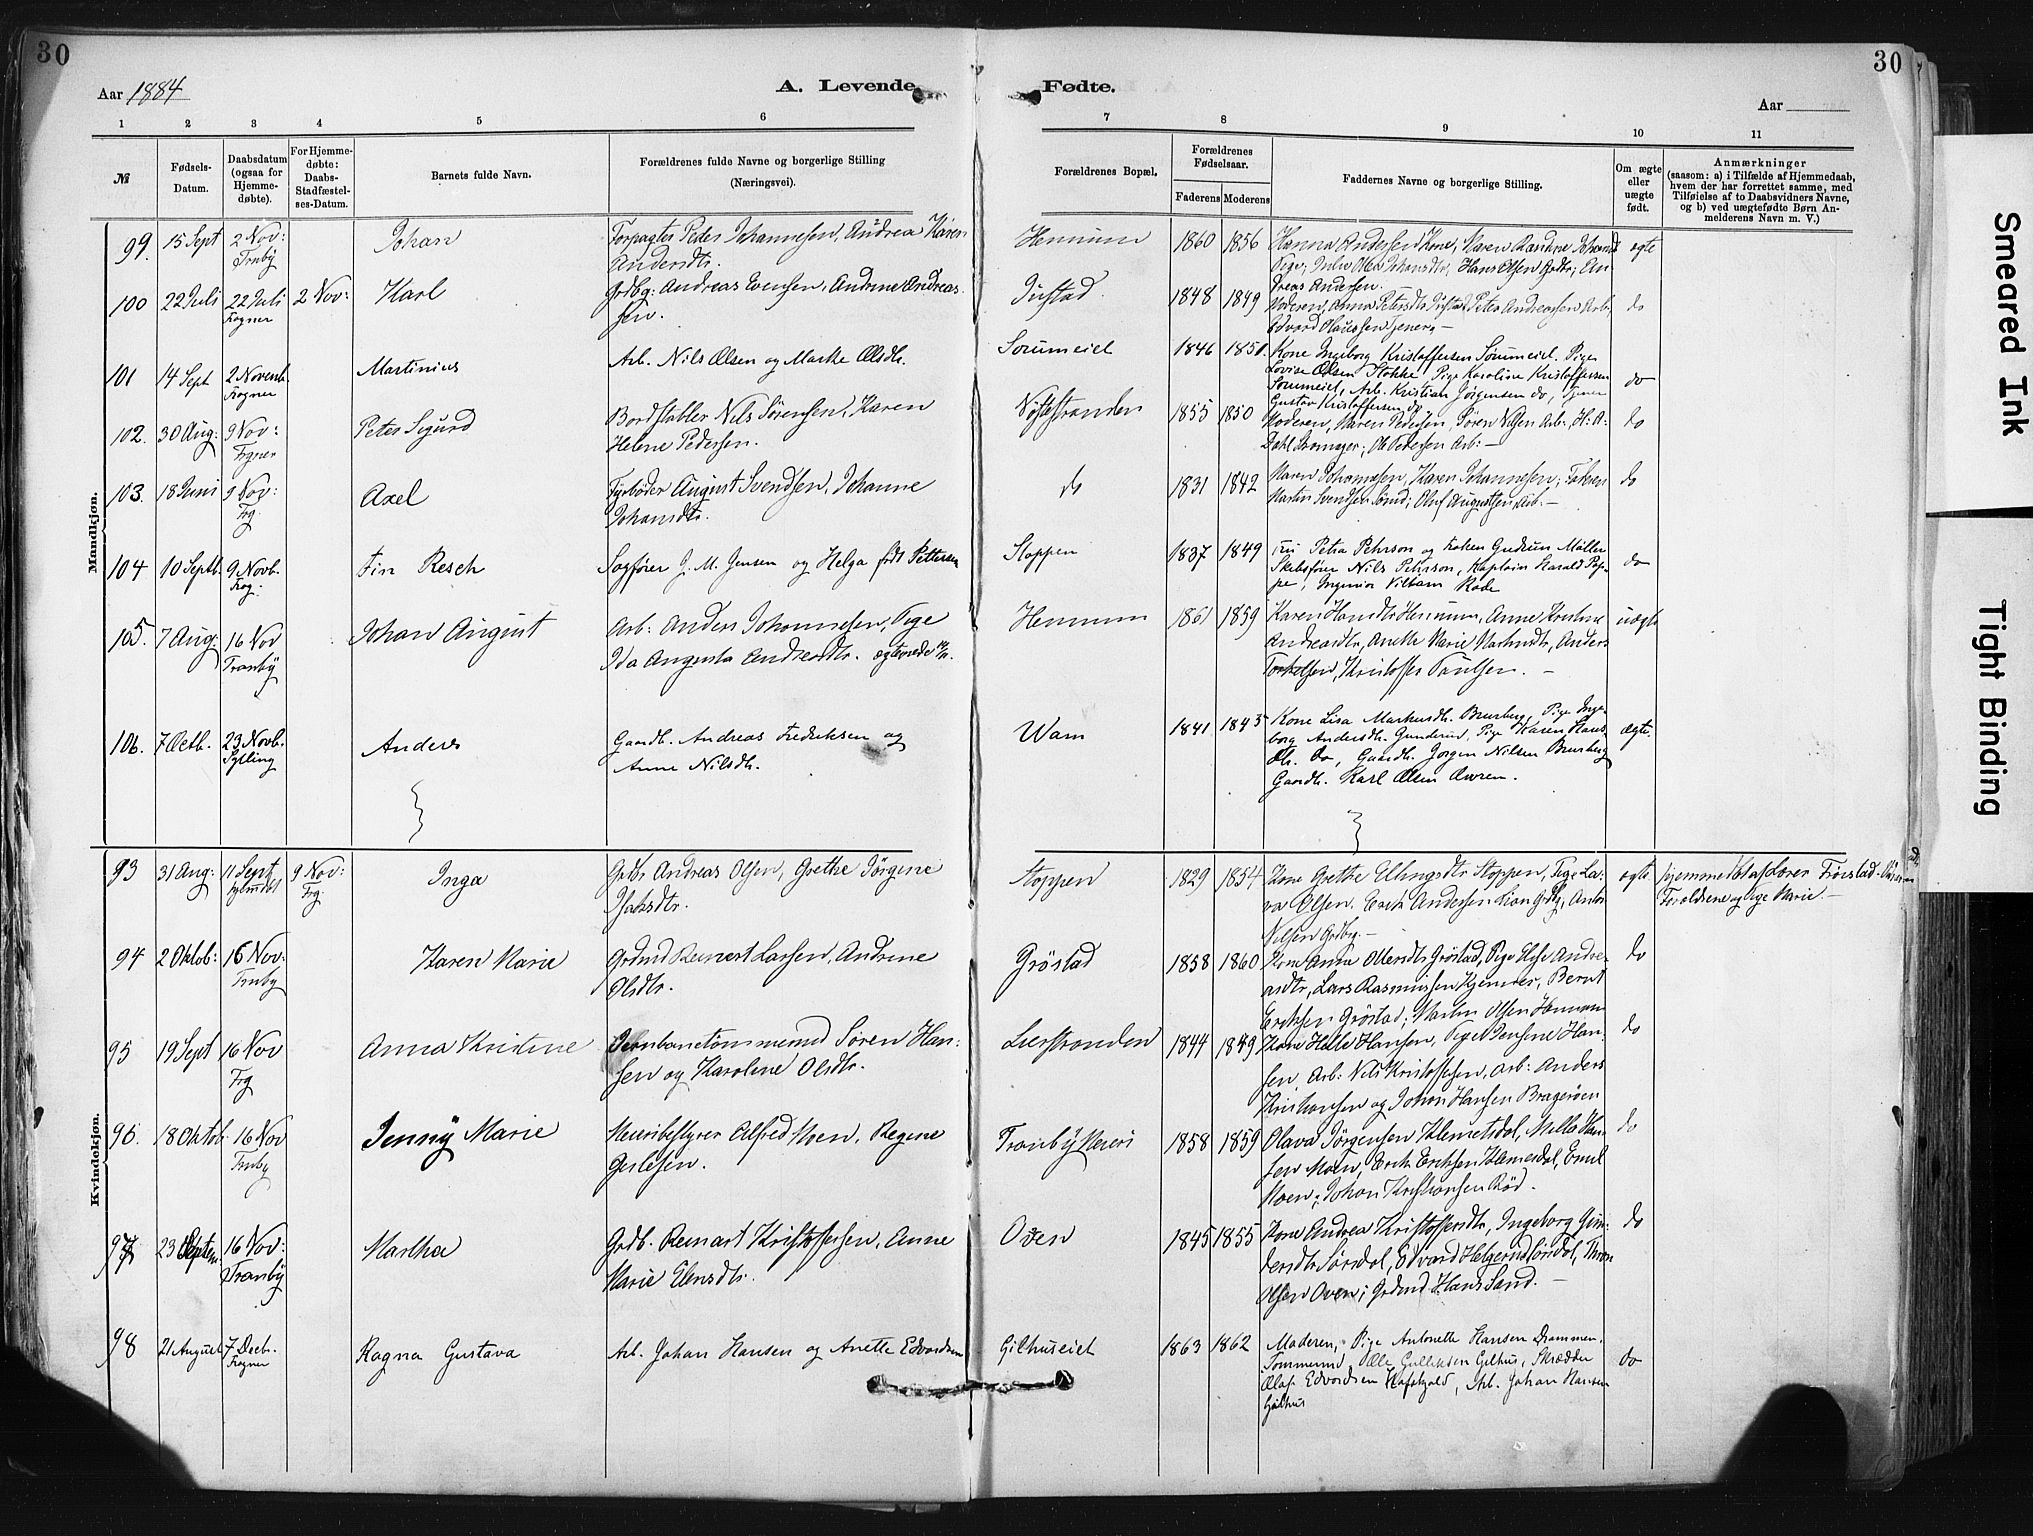 30
30
Aar 1884
A. Levende
Fødte.
Aar
1 2 3 4 5 6 7 8 9 10 11
№
Fødsels-Datum.
Daabsdatum (ogsaa for Hjemme-døbte).
For Hjemme-døbte: Daabs-Stadfæstel-ses-Datum.
Barnets fulde Navn.
Forældrenes fulde Navne og borgerlige Stilling (Næringsvei).
Forældrenes Bopæl,
Forældrenes Fødselsaar.
Faderens Moderens
Faddernes Navne og borgerlige Stilling.
Om ægte eller uægte født.
Anmærkninger (saasom: a) i Tilfælde af Hjemmedaab, hvem der har forrettet samme, med Tilføielse af to Daabsvidners Navne, og b) ved uægtefødte Børn An-melderens Navn m. V.)
Mandkjøn.
99. 15 Sept 2 Nov: Trnby Johan
Forpagter Peder Johannesen, Andrea Karen
Andersdtr.
Hennum 1860 1856
Hanna Andersen Kone, Maren
Pige; Johansdtr, Hans Olsen
dreas Andersen.
ægte
100 22 Juli 22 Juli Frogner 2 Nov: Karl
Grdbg: Andreas Evensen, Andrine Andreas-
sen.
Justad 1848 1849
Moderen, Anna Petersdtr Justad, Peter Andreassen Arb,
Edvard Olaussen Tjener, —
do
101 14 Sept 2 Novemb. Frogner Martinius
Arb. Nils Olsen og Marthe Olsdtr.
Sørumeiet 1846 1851.
Kone Ingeborg Kristoffersen Sørumeiet. Pige
Lovise Olsen Stokke Pige Karoline Kristoffersen
Sørumeiet, Arb. Kristian Jörgensen do, Tjener
Gustav Kristoffersen do
do
102. 30 Aug: 9 Nov: Frgner Peter Sigurd
Bordstabler Nils Sörensen, Karen
Helene Pedersen.
Nøstestranden 1855 1850
Moderen, Maren Pedersen, Sören Nilsen Arb: H: A:
Dahl Ole Pedersen Arb: —
do
103. 18 Juni 9 Nov: Frg. Axel
Fyrbøder August Svendsen, Johanne
Johansdtr.
do 1831 1842
Maren Johannesen, Karen Johannesen; Faderen
Martin Svendsen Smed; Oluf Augustsen, Arb. —
do
104 10 Septb. 9 Novb. Frog. Fin Resch
Sagfører J. M. Jensen og Helga født Pettersen
Stoppen 1837 1849
Fru Petra Pehrson og Frøken Gudrun Møller
Skibsfører Nils Pehrson, Kaptein Harald Pop-
pe, Ingeniør Vilham Rode
do
105. 7 Aug: 16 Nov Tranby Johan August
Arb: Anders Johannesen, Pige
Ida Augusta Andreasdtr. ægteviede
Hennum 1861 1859
Karen Hansdtr Hennum, Anne Kristine
Andreasdtr, Anette Marie Martinsdtr, Anders
Torkelsen, Kristoffer Paulsen. —
uægte
106. 7 Octb. 23 Novb. Sylling Anders
Gaardb. Andreas Fredriksen og
Anne Nilsdtr.
Wam 1841 1843
Kone Lisa Markusdtr. Brusberg, Pige Inge-
borg Andersdtr. Gunderud, Pige Karen Hans-
dtr. do, Gaardb. Jörgen Nilsen Brusberg
Gaardb. Karl Olsen Overen.
ægte.
Kvindekjøn.
93 31 Aug: 11 Sept hjemdøbt 9 Nov: Frg. Inga
Grdbr Andreas Olsen, Grethe Jörgine
Isaksdtr.
Stoppen 1829 1854
Kone Grethe Ellingsdtr Stoppen, Pige La-
va Olsen. Erik Andersen Lian Grdbg, Anton
Nilsen Grdbg. —
ægte
hjemmedøbt af Lærer Frøistad.
Forældrene og Pige Marie. —
94 2 Oktob: 16 Nov: Trnby Karen Marie
Grdmd Reinert Larsen, Andrine
Olsdtr.
Gröstad 1858 1860
Kone Anne Ollersdtr Gröstad, Pige Else Andre-
asdtr, Lars Rasmussen Kjenner, Bernt
Eriksen Gröstad; Martin Olsen Hennum
do
95 19 Sept 16 Nov Frg Anna Kristine
Jernbanetömmermd Sören Han-
sen og Karoline Olsdtr.
Lierstranden 1844 1849
Kone Helle Hansen, Pige Jensine Han-
sen, Arb: Nils Kristoffersen, Arb: Anders
Kristiansen og Johan Hansen Bragerøen
do
96. 18 Oktob 16 Nov Trnby Jenny Marie
Meieribestyrer Alfred Moen, Regine
Gislesen.
Tranby Meieri 1858 1859
Olava Jörgensen Klemetsdal, Mella Han-
sen Moen, Erik Eriksen Klemesdal, Emil
Moen, Johan Kristiansen Röd.
do
97 23 Septem 16 Nov: Tranby Marthea
Grdb. Reinart Kristoffersen, Anne
Marie Elensdtr.
Oven 1845 1855
Kone Andrea Kristoffersdtr, Ingeborg Gun-
dersdtr Sørsdal, Edvard Helgesen Sørsdal, Thron
Olsen Oven; Grdmd Hans Sand. —
do
98 21 August 7 Decb. Frogner Ragna Gustava
Arb. Johan Hansen og Anette Edvardsen
Gilhuseiet 1863 1862
Moderen, Pige Antonette Hansen Drammen.
Tømmermd. Olle Gulliksen Gilhus, Skrædder
Olaf Edvardsen Hafskjold, Arb. Johan Hansen
Gilhus
do
Smeared Ink
Tight Binding